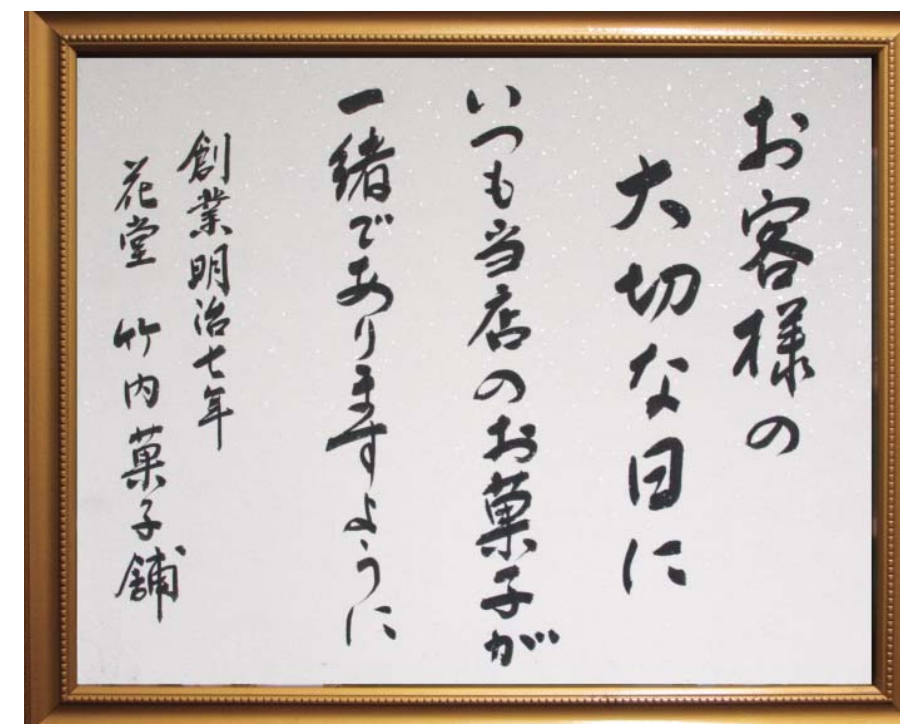 お客様の
大切な日に
いつも当店のお菓子が
一緒でありますように
創業明治七年
花堂 竹内菓子舗